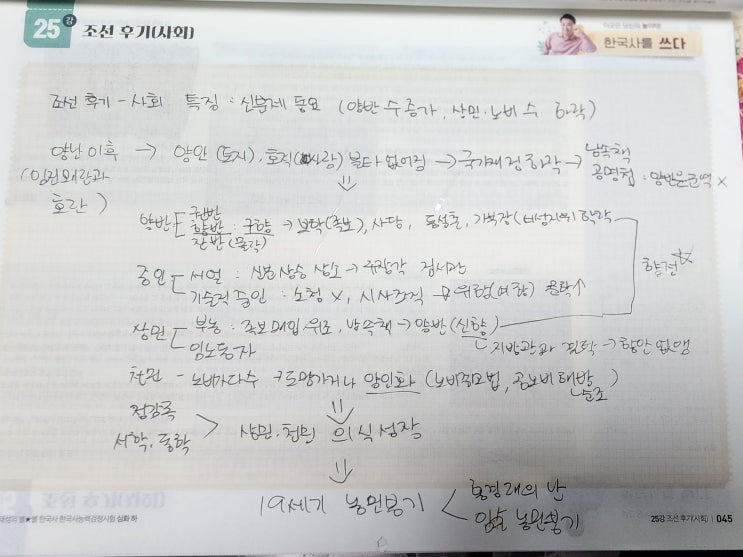 25강 조선 후기(사회)
이곳은 당신의 놀이터
한국사를 쓰다
조선 후기 - 사회 특징 : 신분제 동요 (양반 수 증가, 상민·노비 수 하락)
양난 이후 → 양안(토지), 호적(사람) 불타 없어짐 → 국가재정 하락 → 납속책
공명첩 : 양반은 군역 X
(임진왜란과
호란)
양반 권반
향반 : 구향 → 보탁(족보), 사당, 동성촌, 가부장(여성지위) 하락
잔반(몰락)
향전
중인 서얼 : 신분상승 상소 → 규장각 검서관
기술직 중인 : 소청 X, 시사조직 위항(여항) 문학↑
상민 부농 : 족보 매입·위조, 납속책 → 양반(신향)
지방관과 결탁 → 향안 없앰
임노동자
천민 - 노비가 다수 도망가거나 양인화 (노비종모법, 공노비 해방)
순조
정감록
서학, 동학 > 상민·천민 의식 성장
19세기 농민봉기 < 홍경래의 난
임술 농민봉기
태성의 별★별 한국사 한국사능력검정시험 심화 하
25강 조선 후기(사회) | 045